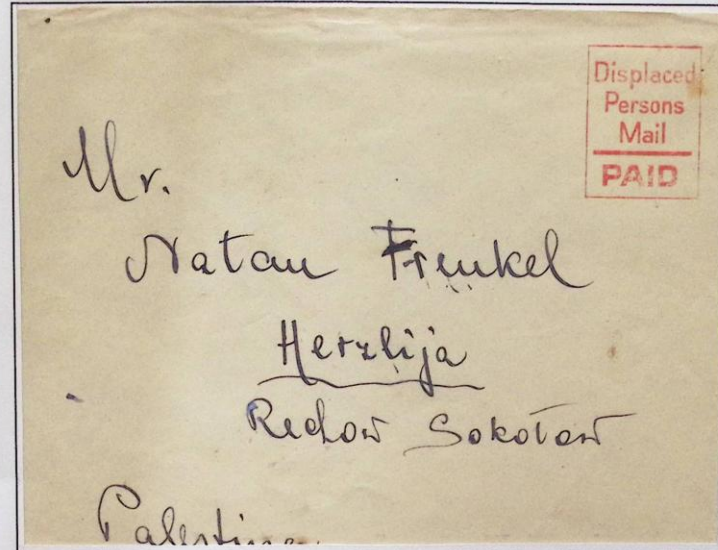 Displaced
Persons
Mail
PAID
Mr.
Natan Frenkel
Herzlija
Rechow Sokołow
Palestine